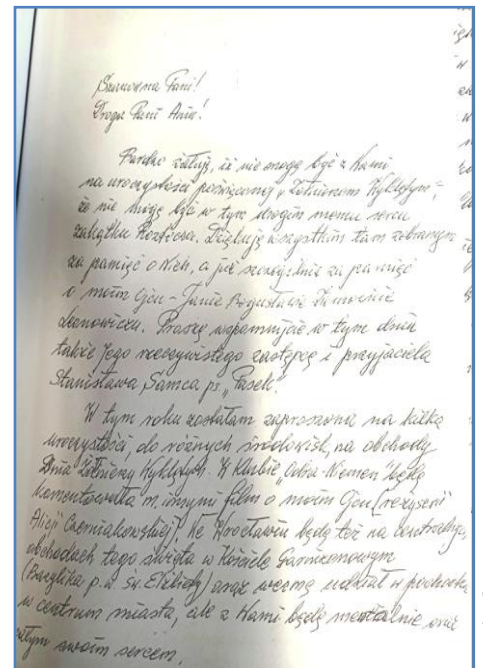 Szanowna Pani!
Droga Pani Anno!
Bardzo żałuję, iż nie mogę być z Wami
na uroczystości poświęconej „Żołnierzom Wyklętym",
że nie mogę być w tym drogim memu sercu
zakątku Roztocza. Dziękuję wszystkim tam zebranym
za pamięć o Nich, a już szczególnie za pamięć
o moim Ojcu – Janie Bogusławie
Leonowiczu. Proszę wspomnijcie w tym dniu
także Jego rzeczywistego zastępcę i przyjaciela
Stanisława Samca ps. „Pasek".
W tym roku zostałam zaproszona na kilka
uroczystości, do różnych środowisk, na obchody
Dnia Żołnierzy Wyklętych. W klubie „Odra-Niemen" będę
komentowała m. innymi film o moim Ojcu (reżyserii
Alicji Czerniakowskiej). We Wrocławiu będę też na centralnych
obchodach tego święta w Kościele Garnizonowym
(Bazylika p.w. św. Elżbiety) oraz wezmę udział w pochodzie
w centrum miasta, ale z Wami będę mentalnie oraz
całym swoim sercem.